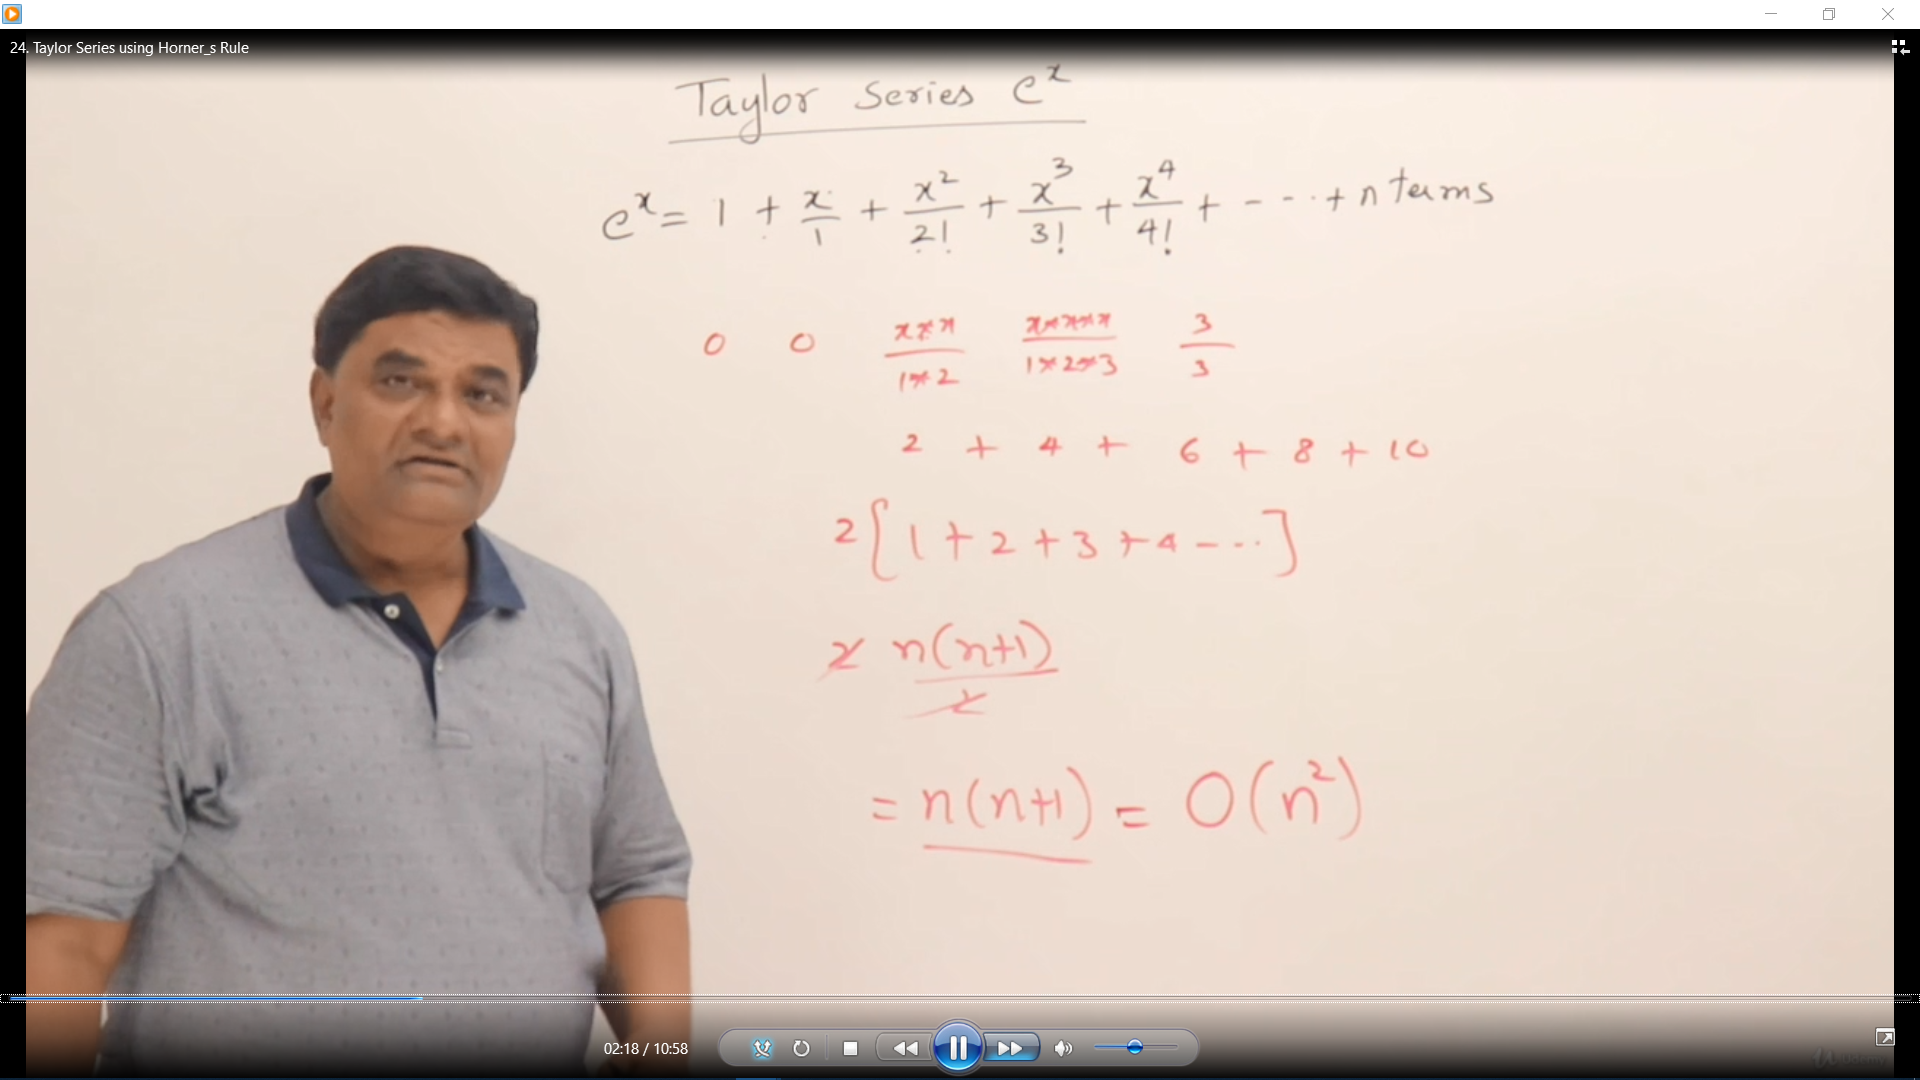 24. Taylor Series using Horner_s Rule
Taylor Series eˣ
eˣ = 1 + x/1 + x²/2! + x³/3! + x⁴/4! + - - - - + n terms
0 0 x*x/1*2 x*x*x/1*2*3 3/3
2 + 4 + 6 + 8 + 10
2[1+2+3+4 - - - -]
2 n(n+1)/2
= n(n+1) = O(n²)
02:18 / 10:58
udemy